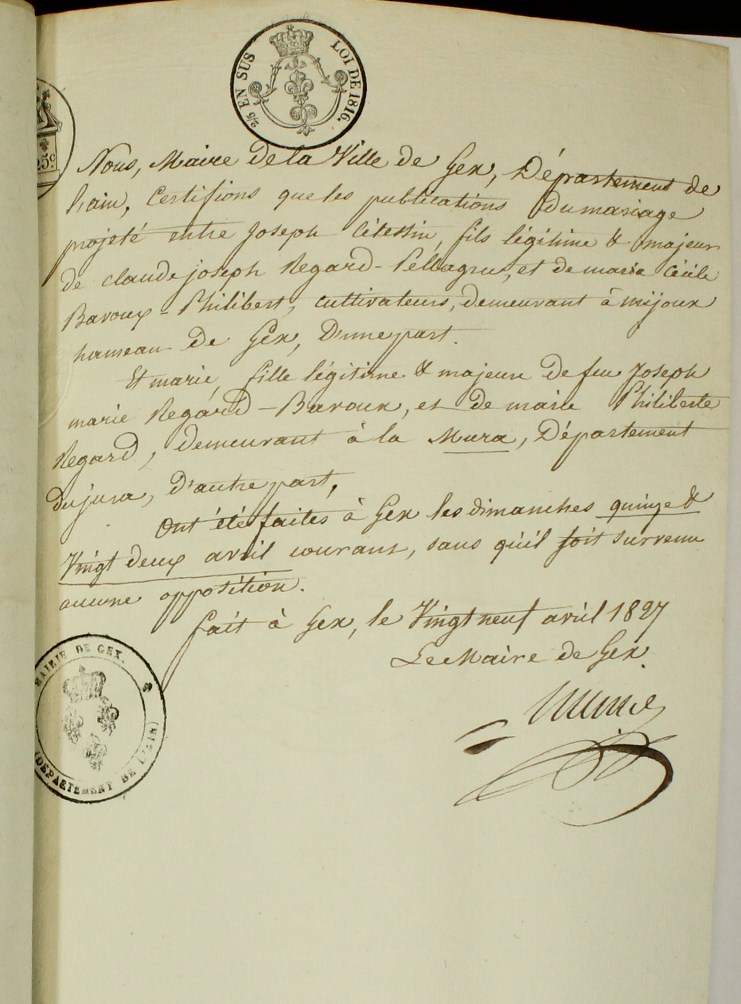 2/5 EN SUS LOI DE 1816.
25c
Nous, Maire de la Ville de Gex, Département de
l'ain, Certifions que les publications du mariage
projeté entre Joseph Célestin, fils légitime & majeur
de claude joseph Regard-Pellagru, et de marie Cécile
Baroux-Philibert, cultivateurs, demeurant à mijoux
hameau de Gex, D'une part.
Et marie, fille légitime & majeure de feu Joseph
marie Regard-Baroux, et de marie Philiberte
Regard, demeurant à la Mura, Département
du jura, d'autre part,
Ont été faites à Gex les dimanches quinze &
Vingt deux avril courant, sans qu'il soit survenu
aucune opposition.
fait à Gex, le Vingt neuf avril 1827
Le Maire de Gex.
MAIRIE DE GEX.
(DÉPARTEMENT DE L'AIN)